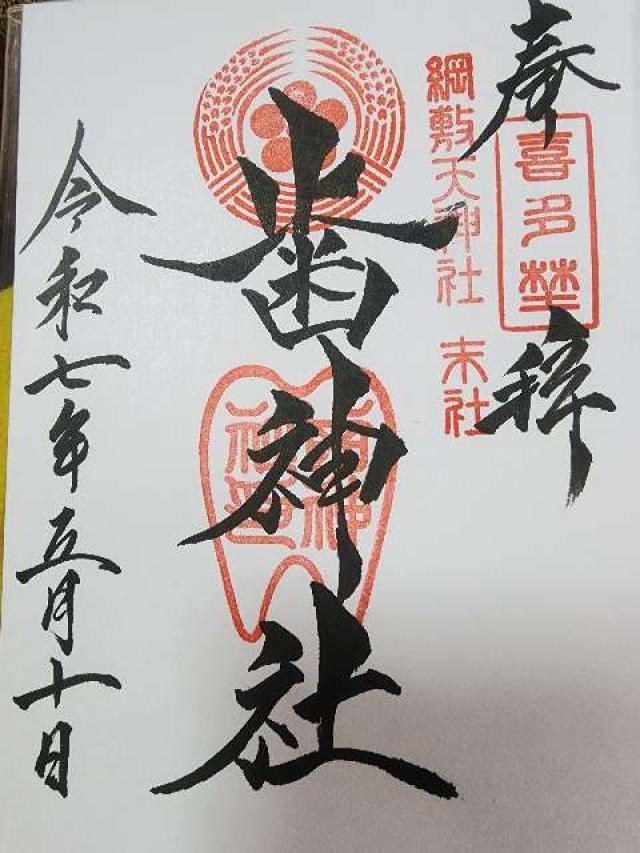 奉拝
喜多埜
綱敷天神社 末社
歯神社
歯神社印
令和七年五月十日